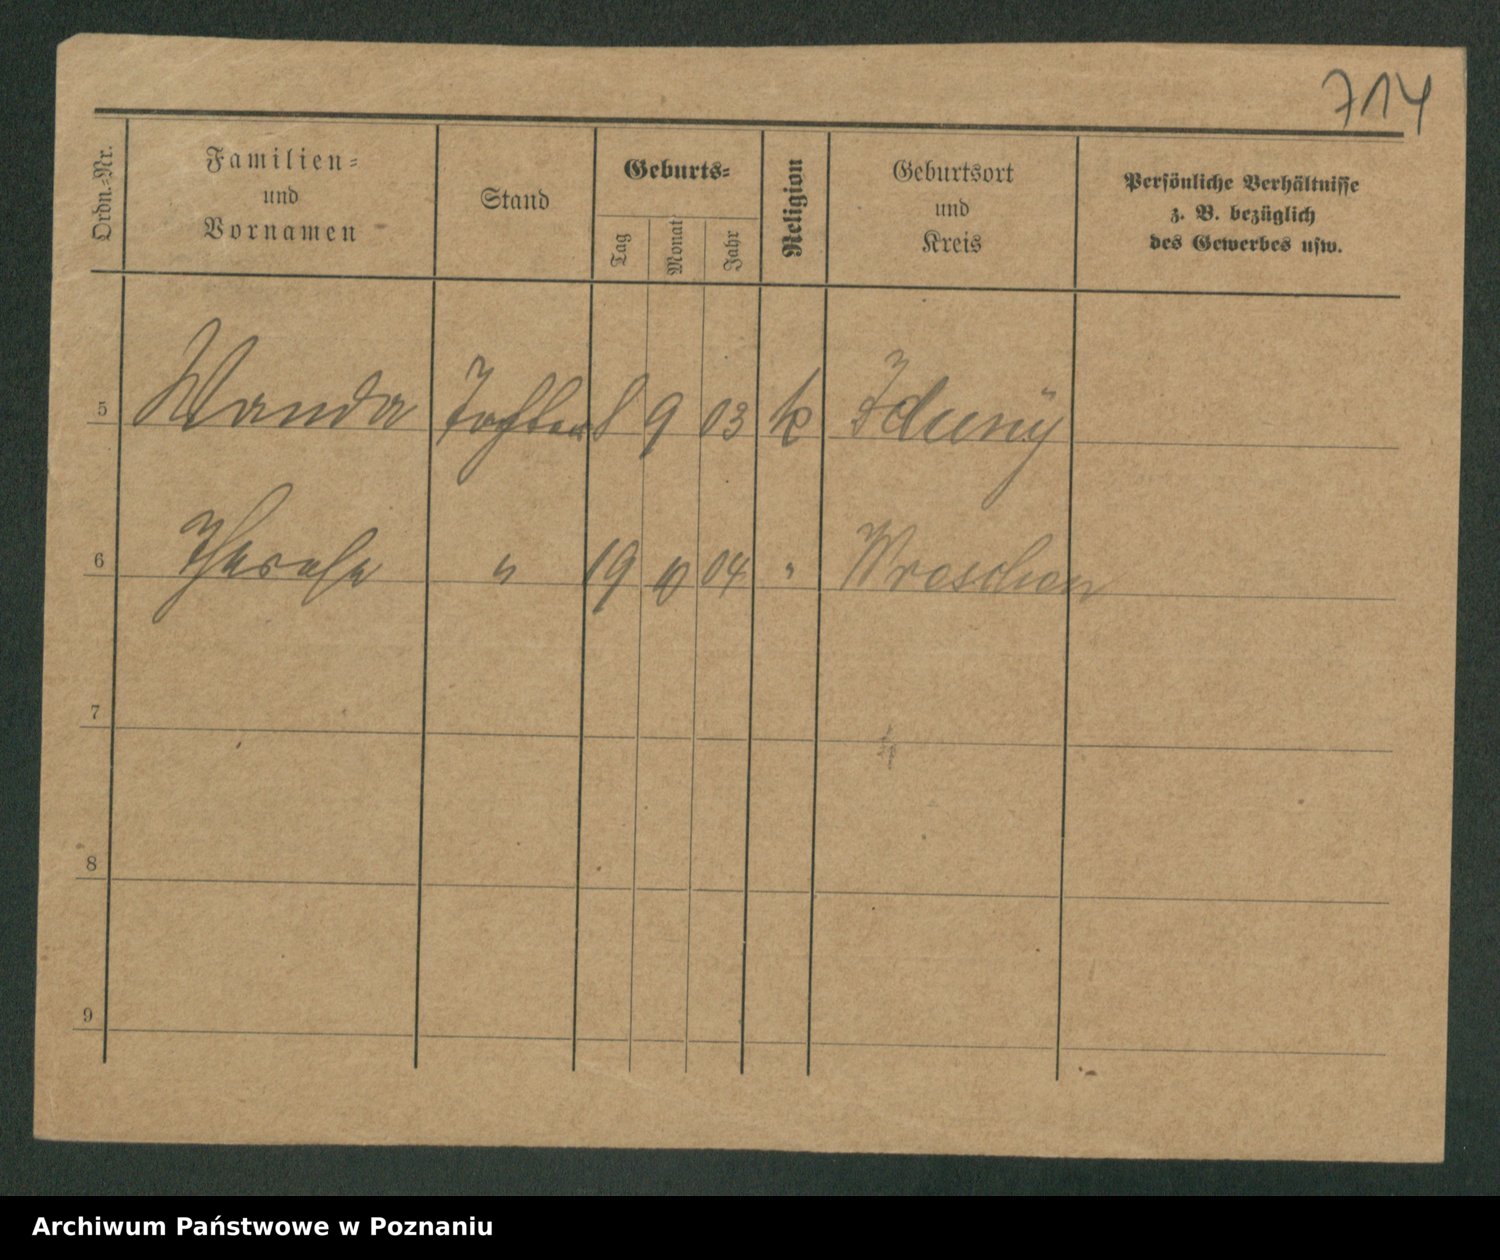 714
Ordn.-Nr.
Familien-
und
Vornamen
Stand
Geburts-
Tag
Monat
Jahr
Religion
Geburtsort
und
Kreis
Persönliche Verhältnisse
z. B. bezüglich
des Gewerbes usw.
5 Wanda Tochter 8 9 03 k Zduny
6 Therese " 19 10 04 " Wreschen
7
8
9
Archiwum Państwowe w Poznaniu